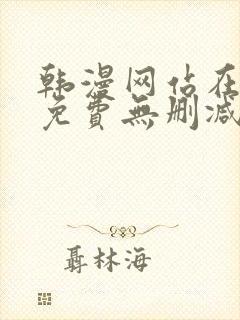 韩漫网站在
免費無删减
聶林海